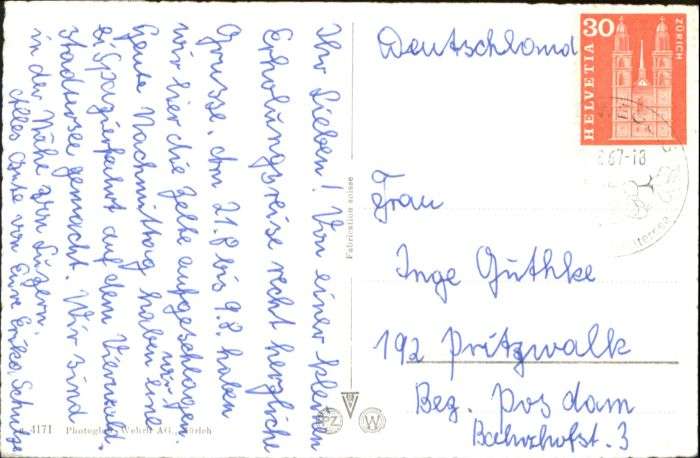 Ihr Lieben! Von einer kleinen
Erholungsreise recht herzliche
Grüsse. Am 21.8 bis 9.8. haben
wir hier die Zelte aufgeschlagen.
Heute Nachmittag haben wir eine
Spazierfahrt auf dem Vierwald
stadtersee gemacht. Wir sind
in der Nähe von Luzern.
Alles Gute von Eure Erika Schulze
Deutschland
Frau
Inge Guthke
192 Pritzwalk
Bez. Posdam
Bahnhofst. 3
HELVETIA
30
ZÜRICH
67-18
Fabrication suisse
PZ
W
4171 Photoglob-Wehrli AG., Zürich